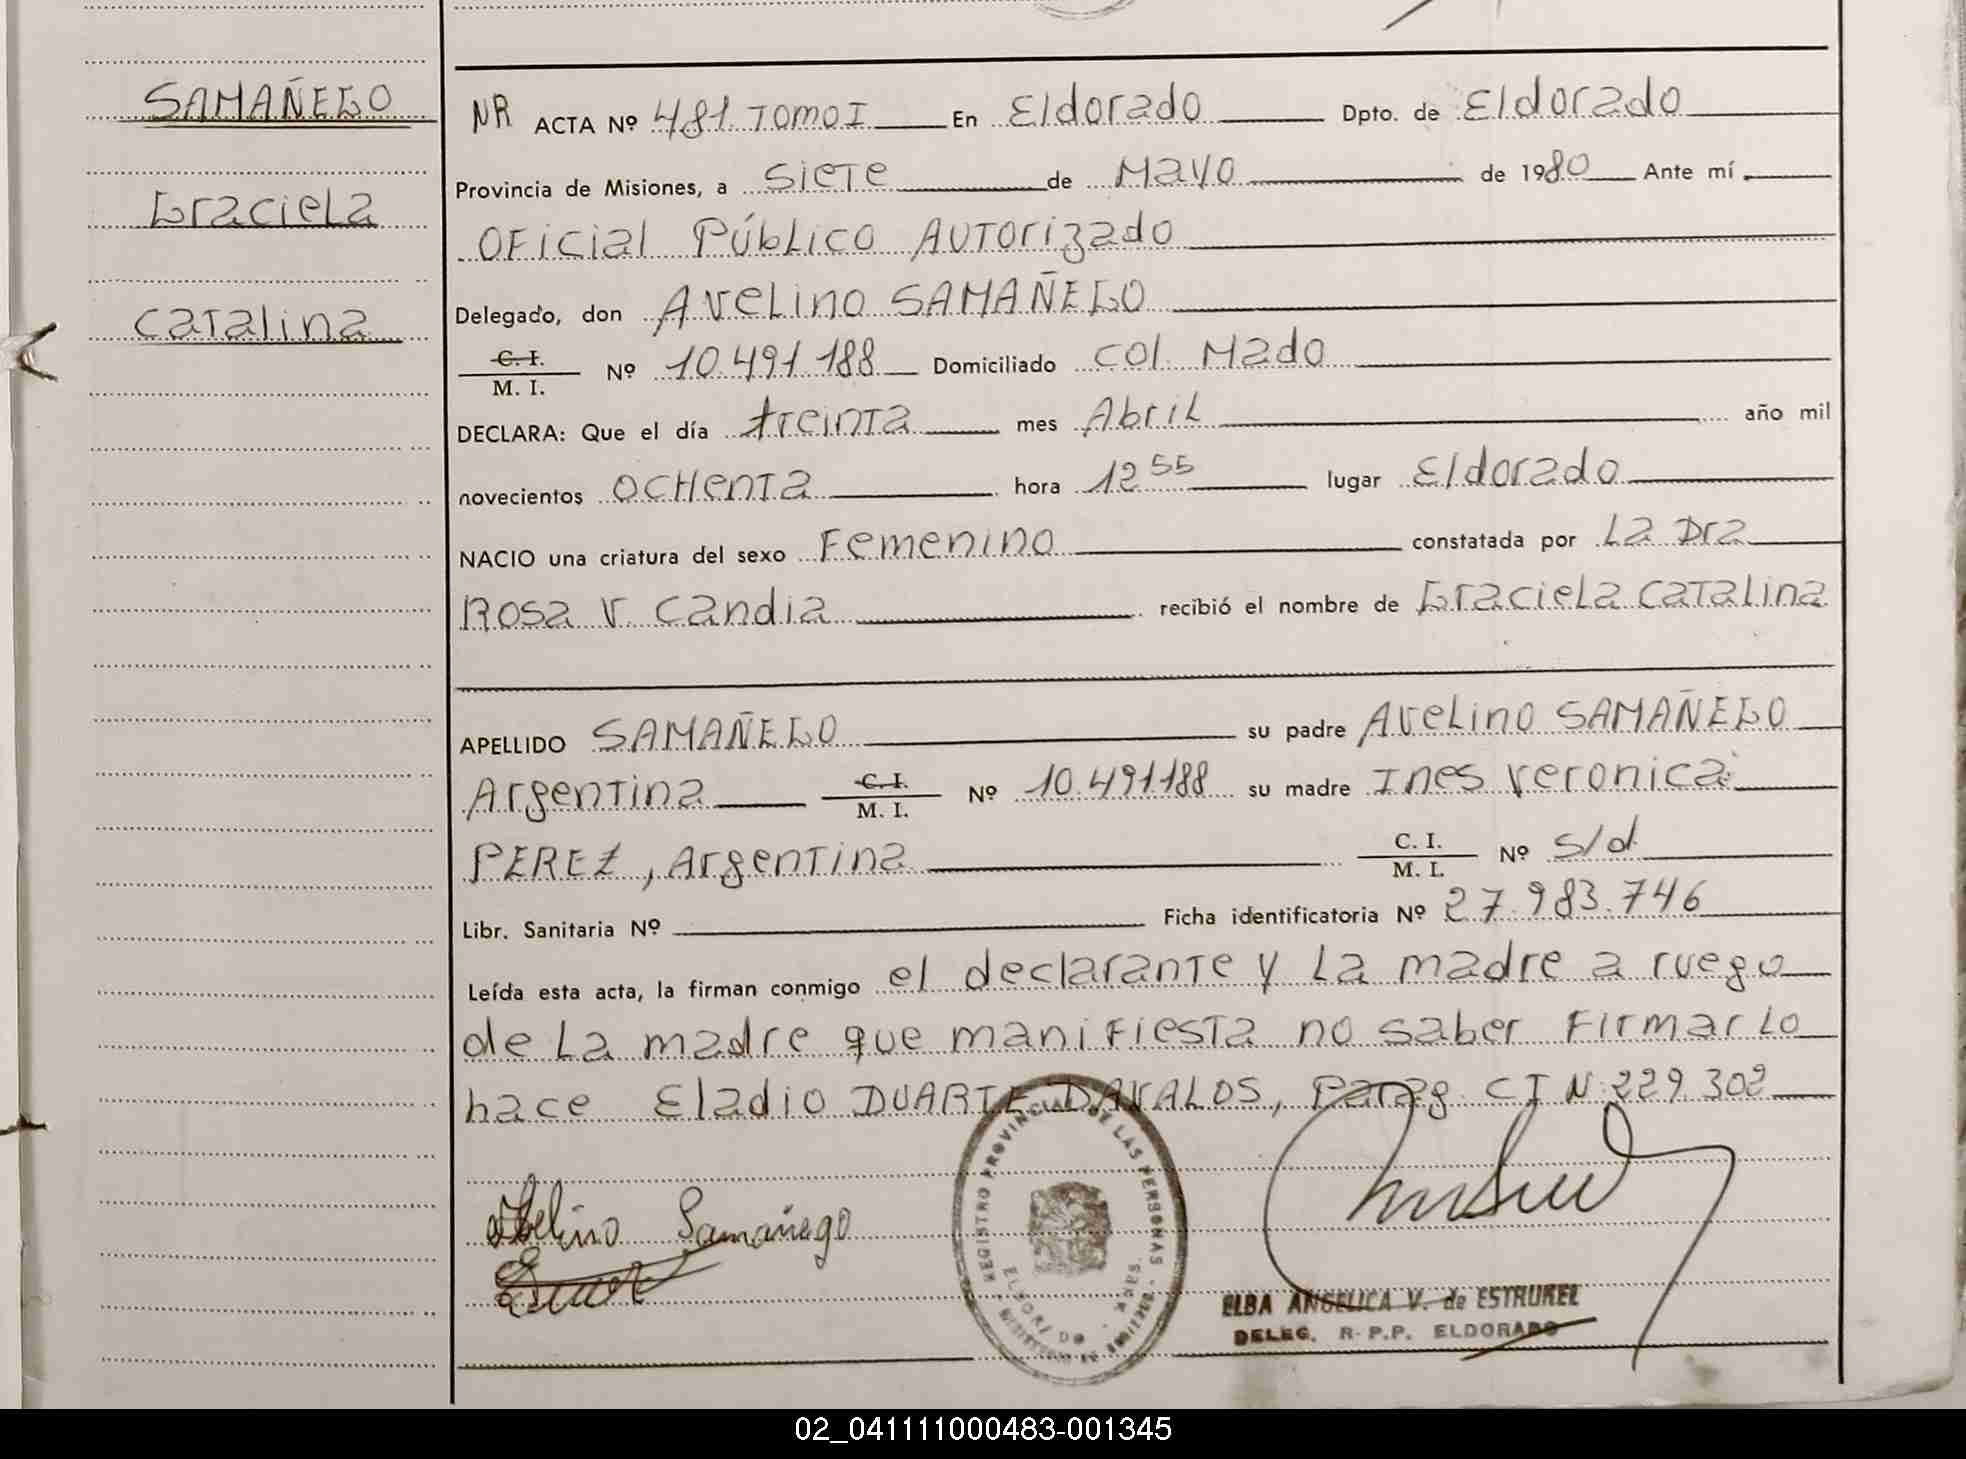 SAMAÑEGO
Graciela
Catalina
NR ACTA Nº 481 TOMO I En Eldorado Dpto. de Eldorado
Provincia de Misiones, a Siete de Mayo de 1980 Ante mí
Oficial Público Autorizado
Delegado, don Avelino SAMAÑEGO
C. I. / M. I. Nº 10.491.188 Domiciliado Col. Mado
DECLARA: Que el día treinta mes Abril año mil
novecientos OCHENTA hora 12 55 lugar Eldorado
NACIO una criatura del sexo Femenino constatada por La Dra
Rosa V. Candia recibió el nombre de Graciela Catalina
APELLIDO SAMAÑEGO su padre Avelino SAMAÑEGO
Argentina C. I. / M. I. Nº 10.491188 su madre Ines Veronica
PEREZ, Argentina C. I. / M. I. Nº s/d
Libr. Sanitaria Nº Ficha identificatoria Nº 27.983.746
Leída esta acta, la firman conmigo el declarante y La madre a ruego
de La madre que manifiesta no saber firmar Lo
hace Eladio DUARTE DAVALOS, Parag. CI N: 229.302
Avelino Samañego
REGISTRO PROVINCIAL DE LAS PERSONAS
ELDORADO
ELBA ANGELICA V. de ESTRUBEL
DELEG. R. P.P. ELDORADO
02_041111000483-001345